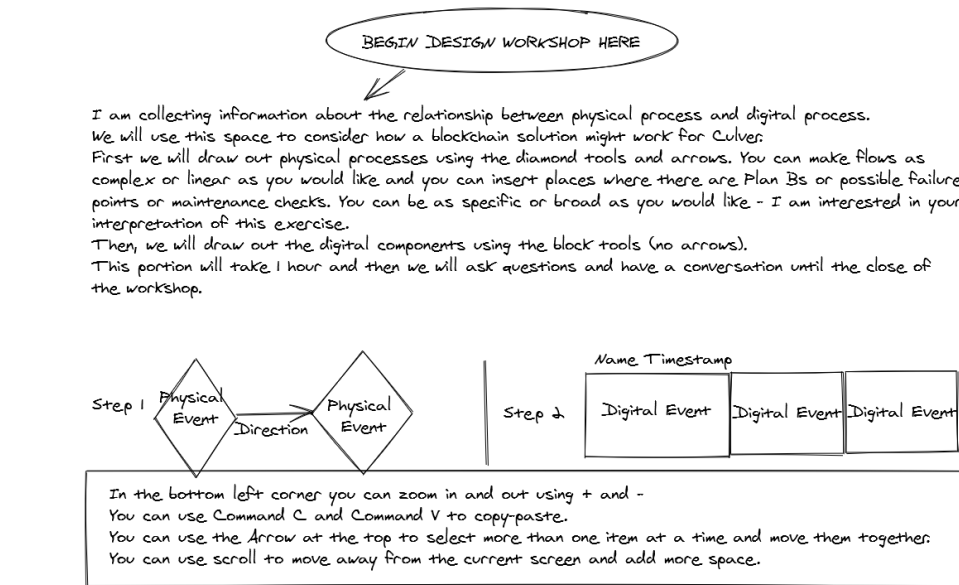 BEGIN DESIGN WORKSHOP HERE
I am collecting information about the relationship between physical process and digital process.
We will use this space to consider how a blockchain solution might work for Culver.
First we will draw out physical processes using the diamond tools and arrows. You can make flows as
complex or linear as you would like and you can insert places where there are Plan Bs or possible failure
points or maintenance checks. You can be as specific or broad as you would like - I am interested in your
interpretation of this exercise.
Then, we will draw out the digital components using the block tools (no arrows).
This portion will take 1 hour and then we will ask questions and have a conversation until the close of
the workshop.
Step 1
Physical
Event
Direction
Physical
Event
Step 2
Name Timestamp
Digital Event
Digital Event
Digital Event
In the bottom left corner you can zoom in and out using + and -
You can use Command C and Command V to copy-paste.
You can use the Arrow at the top to select more than one item at a time and move them together.
You can use scroll to move away from the current screen and add more space.